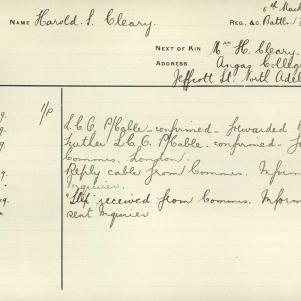 6th Mach
NAME Harold. S. Cleary.
REG. &C.
NEXT OF KIN Mrs H. Cleary.
ADDRESS Angas College
Jeffcott St. North Adel
1/P
L.C.O. P/Cable - confirmed - Forwarded
Further L.C.O. P/Cable - confirmed -
Commrs. London.
Reply cable from Commrs. Inform
Inquirer.
"Slip" received from Commrs. Inform
sent Inquirer